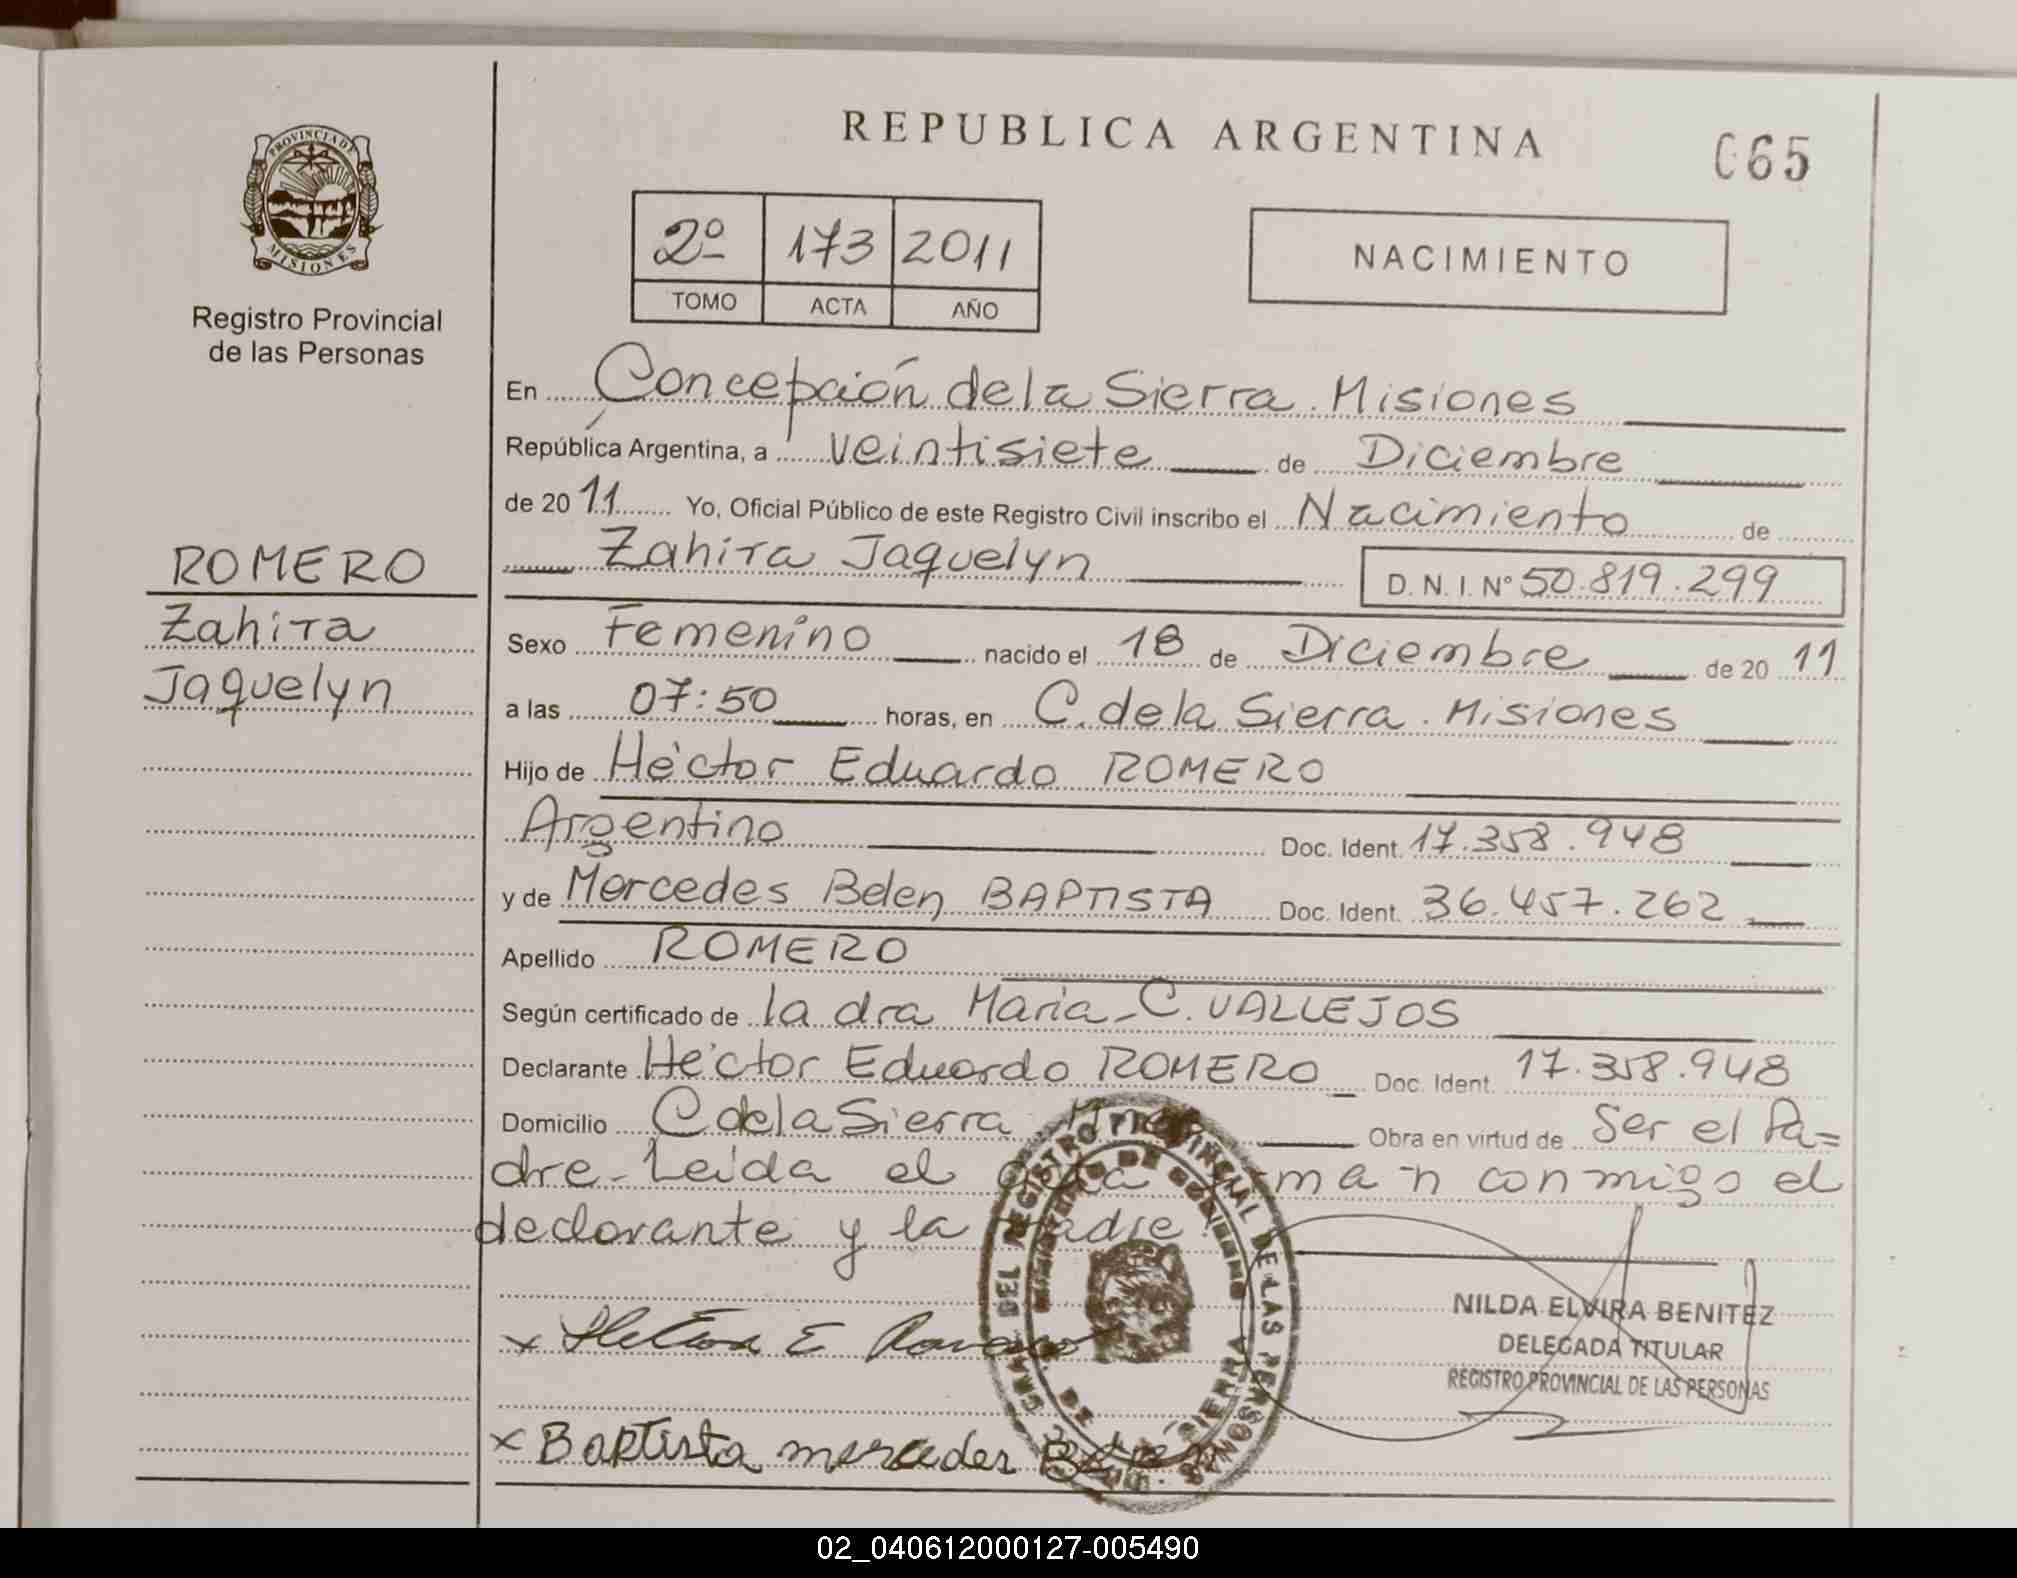 PROVINCIA D
MISIONES
Registro Provincial
de las Personas
ROMERO
Zahira
Jaquelyn
REPUBLICA ARGENTINA
065
2º 173 2011
TOMO ACTA AÑO
NACIMIENTO
En Concepción de la Sierra. Misiones
República Argentina, a veintisiete de Diciembre
de 2011 Yo, Oficial Público de este Registro Civil inscribo el Nacimiento de
Zahira Jaquelyn D.N.I. Nº 50.819.299
Sexo Femenino nacido el 18 de Diciembre de 2011
a las 07:50 horas, en C. de la Sierra. Misiones
Hijo de Héctor Eduardo ROMERO
Argentino Doc. Ident. 17.358.948
y de Mercedes Belen BAPTISTA Doc. Ident. 36.457.262
Apellido ROMERO
Según certificado de la dra Maria C. VALLEJOS
Declarante Héctor Eduardo ROMERO Doc. Ident. 17.358.948
Domicilio C de la Sierra Mnes Obra en virtud de Ser el Pa=
dre. Leida el acta firman conmigo el
declarante y la Madre
x E
x Baptista mercedes Belen
REGISTRO PROVINCIAL DE LAS PERSONAS
MINISTERIO DE GOBIERNO
SIERRA
NILDA ELVIRA BENITEZ
DELEGADA TITULAR
REGISTRO PROVINCIAL DE LAS PERSONAS
02_040612000127-005490